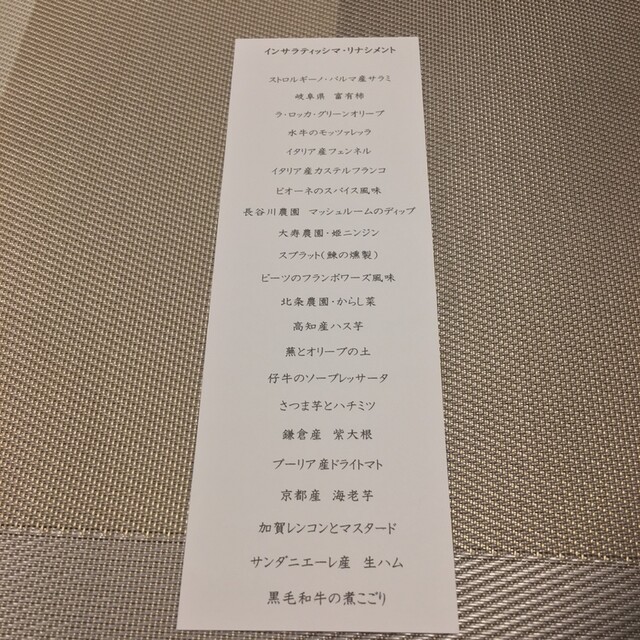 インサラティッシマ・リナシメント
ストロルギーノ・パルマ産サラミ
岐阜県 富有柿
ラ・ロッカ・グリーンオリーブ
水牛のモッツァレッラ
イタリア産フェンネル
イタリア産カステルフランコ
ピオーネのスパイス風味
長谷川農園 マッシュルームのディップ
大寿農園・姫ニンジン
スプラット(鰊の燻製)
ビーツのフランボワーズ風味
北条農園・からし菜
高知産ハス芋
蕪とオリーブの土
仔牛のソープレッサータ
さつま芋とハチミツ
鎌倉産 紫大根
プーリア産ドライトマト
京都産 海老芋
加賀レンコンとマスタード
サンダニエーレ産 生ハム
黒毛和牛の煮こごり